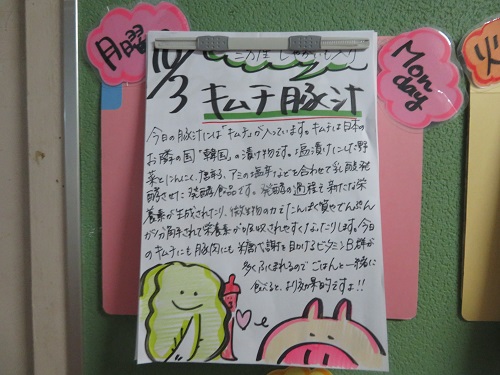 月曜
10/3
キムチ豚汁
Monday
火
今日の豚汁には「キムチ」が入っています。キムチは日本の
お隣の国「韓国」の漬け物です。塩漬けにした野
菜とにんにく、唐辛子、アミの塩辛などを合わせて乳酸発
酵させた発酵食品です。発酵の過程で新たな栄
養素が生成されたり、微生物の力でたんぱく質やでんぷん
が分解されて栄養素が吸収されやすくなったりします。今日
のキムチにも豚肉にも糖代謝を助けるビタミンB群が
多くふくまれるので ごはんと一緒に
食べると、より効果的ですよ!!